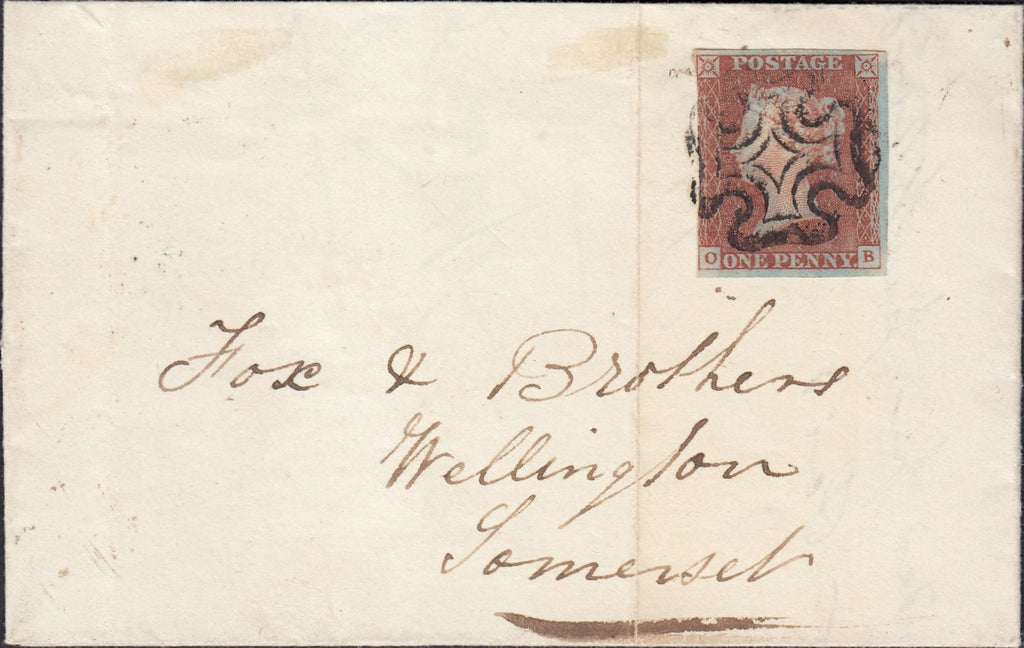 POSTAGE
O ONE PENNY. B
Fox & Brothers
Wellington
Somerset